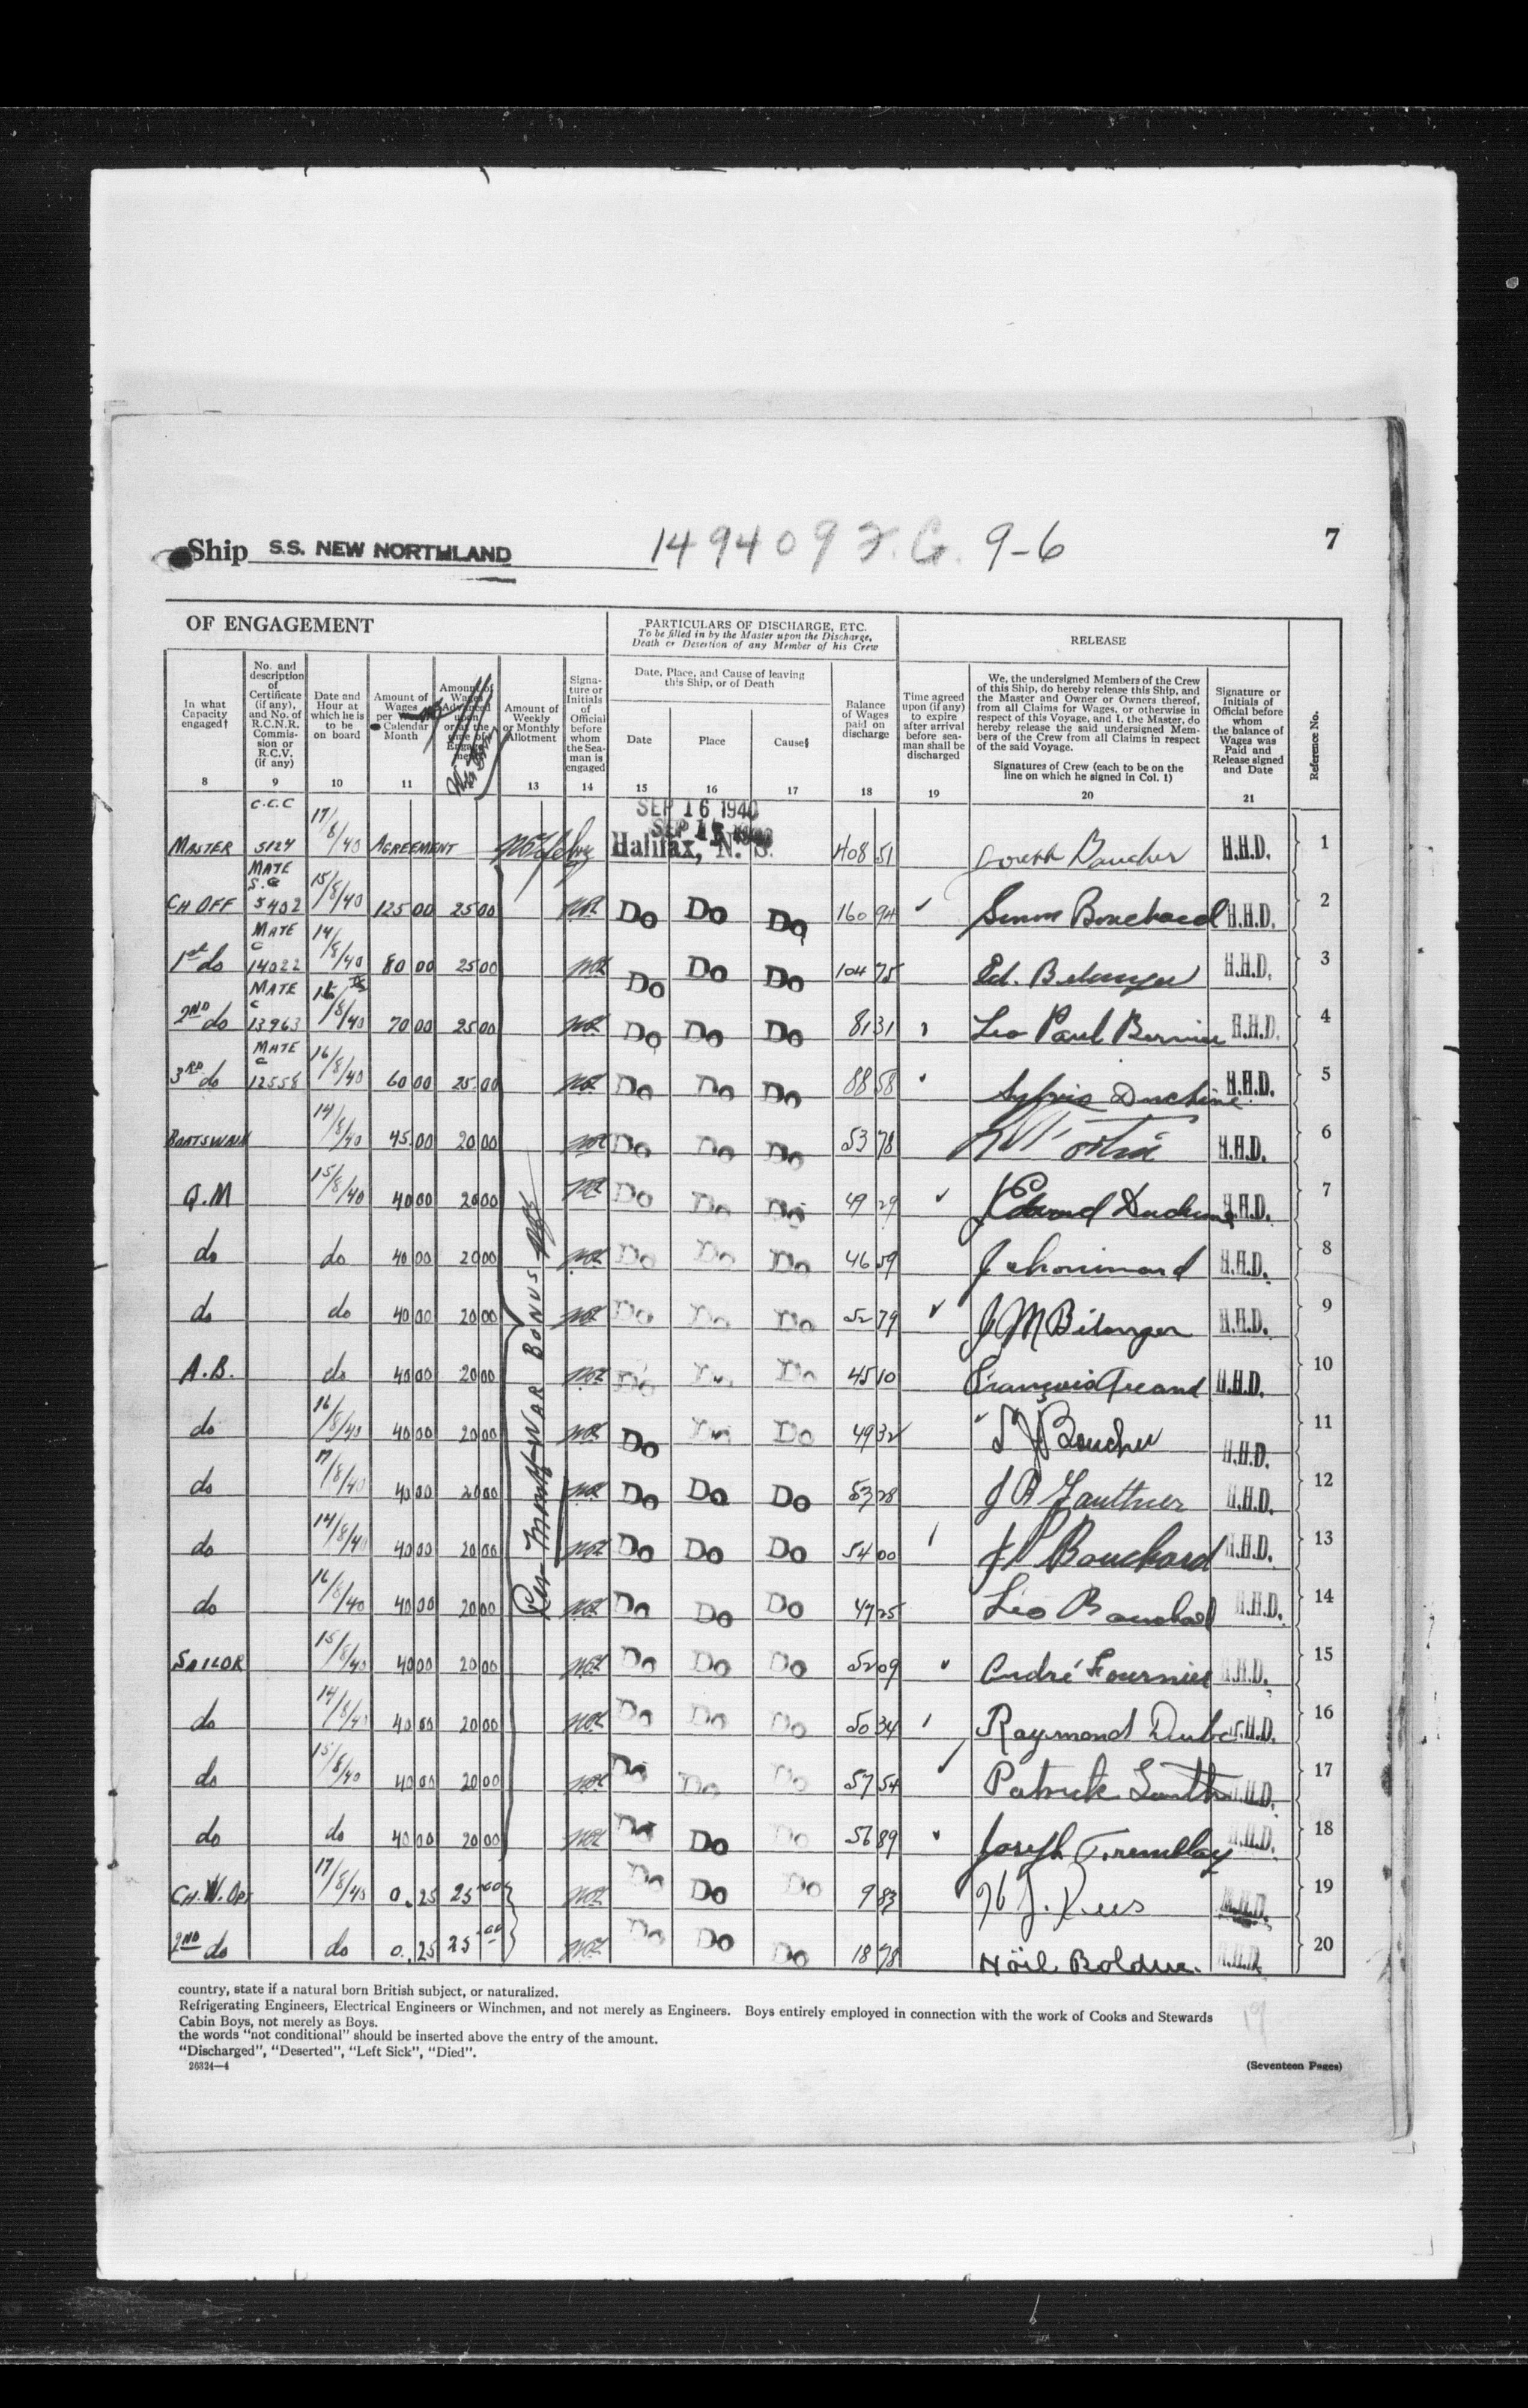 Ship S.S. NEW NORTHLAND 149409 F.G. 9-6 7
OF ENGAGEMENT
PARTICULARS OF DISCHARGE, ETC.
To be filled in by the Master upon the Discharge,
Death or Desertion of any Member of his Crew
RELEASE
In what Capacity engaged†
No. and description of Certificate (if any), and No. of R.C.N.R. Commission or R.C.V. (if any)
Date and Hour at which he is to be on board
Amount of Wages per Calendar Month
Amount of Wages Advanced upon or at the time of Engagement
Amount of Weekly or Monthly Allotment
Signature or Initials of Official before whom the Seaman is engaged
Date, Place, and Cause of leaving this Ship, or of Death
Date Place Cause§
Balance of Wages paid on discharge
Time agreed upon (if any) to expire after arrival before seaman shall be discharged
We, the undersigned Members of the Crew
of this Ship, do hereby release this Ship, and
the Master and Owner or Owners thereof,
from all Claims for Wages, or otherwise in
respect of this Voyage, and I, the Master, do
hereby release the said undersigned Members of the Crew from all Claims in respect
of the said Voyage.
Signatures of Crew (each to be on the
line on which he signed in Col. 1)
Signature or Initials of Official before whom the balance of Wages was Paid and Release signed and Date
Reference No.
8 9 10 11 13 14 15 16 17 18 19 20 21
MASTER C.G.C 5124 17/8/40 AGREEMENT SEP 16 1940 Halifax, N.S. 408 51 Joseph Boucher H.H.D. 1
CH OFF MATE 5402 15/8/40 125 00 25 00 Do Do Do 160 94 Simon Bouchard H.H.D. 2
1st do MATE C 14022 14/8/40 80 00 25 00 Do Do Do 104 75 Ed. Belanger H.H.D. 3
2ND do MATE C 13963 /8/40 70 00 25 00 Do Do Do 81 31 Leo Paul Bernier H.H.D. 4
3RD do MATE C 12558 16/8/40 60 00 25 00 Do Do Do 88 58 Sylvio Duchène H.H.D. 5
BOATSWAIN 14/8/40 45 00 20 00 Do Do Do 53 78 Fortin H.H.D. 6
Q.M 15/8/40 40 00 20 00 Do Do Do 49 29 Edward Duchene H.H.D. 7
do do 40 00 20 00 Do Do Do 46 59 J Chouinard H.H.D. 8
do do 40 00 20 00 Do Do Do 52 79 J M Bélanger H.H.D. 9
A.B. do 40 00 20 00 Do Do Do 45 10 François H.H.D. 10
do 16/8/40 40 00 20 00 Do Do Do 49 32 Boucher H.H.D. 11
do 17/8/40 40 00 20 00 Do Do Do 53 28 J B Gauthier H.H.D. 12
do 14/8/40 40 00 20 00 Do Do Do 54 00 J P Bouchard H.H.D. 13
do 16/8/40 40 00 20 00 Do Do Do 47 25 Léo Bouchard H.H.D. 14
SAILOR 15/8/40 40 00 20 00 Do Do Do 52 09 André Fournier H.H.D. 15
do 14/8/40 40 00 20 00 Do Do Do 50 34 Raymond Dube H.H.D. 16
do 15/8/40 40 00 20 00 Do Do Do 57 54 Patrick Smith H.H.D. 17
do do 40 00 20 00 Do Do Do 56 89 Joseph Tremblay H.H.D. 18
CH.W.OPR 17/8/40 0.25 25 00 Do Do Do 9 83 H.H.D. 19
2ND do do 0.25 25 00 Do Do Do 18 78 Nöil Bolduc. H.H.D. 20
Per Month WAR BONUS
country, state if a natural born British subject, or naturalized.
Refrigerating Engineers, Electrical Engineers or Winchmen, and not merely as Engineers. Boys entirely employed in connection with the work of Cooks and Stewards
Cabin Boys, not merely as Boys.
the words "not conditional" should be inserted above the entry of the amount.
"Discharged", "Deserted", "Left Sick", "Died".
26324—4
19
(Seventeen Pages)